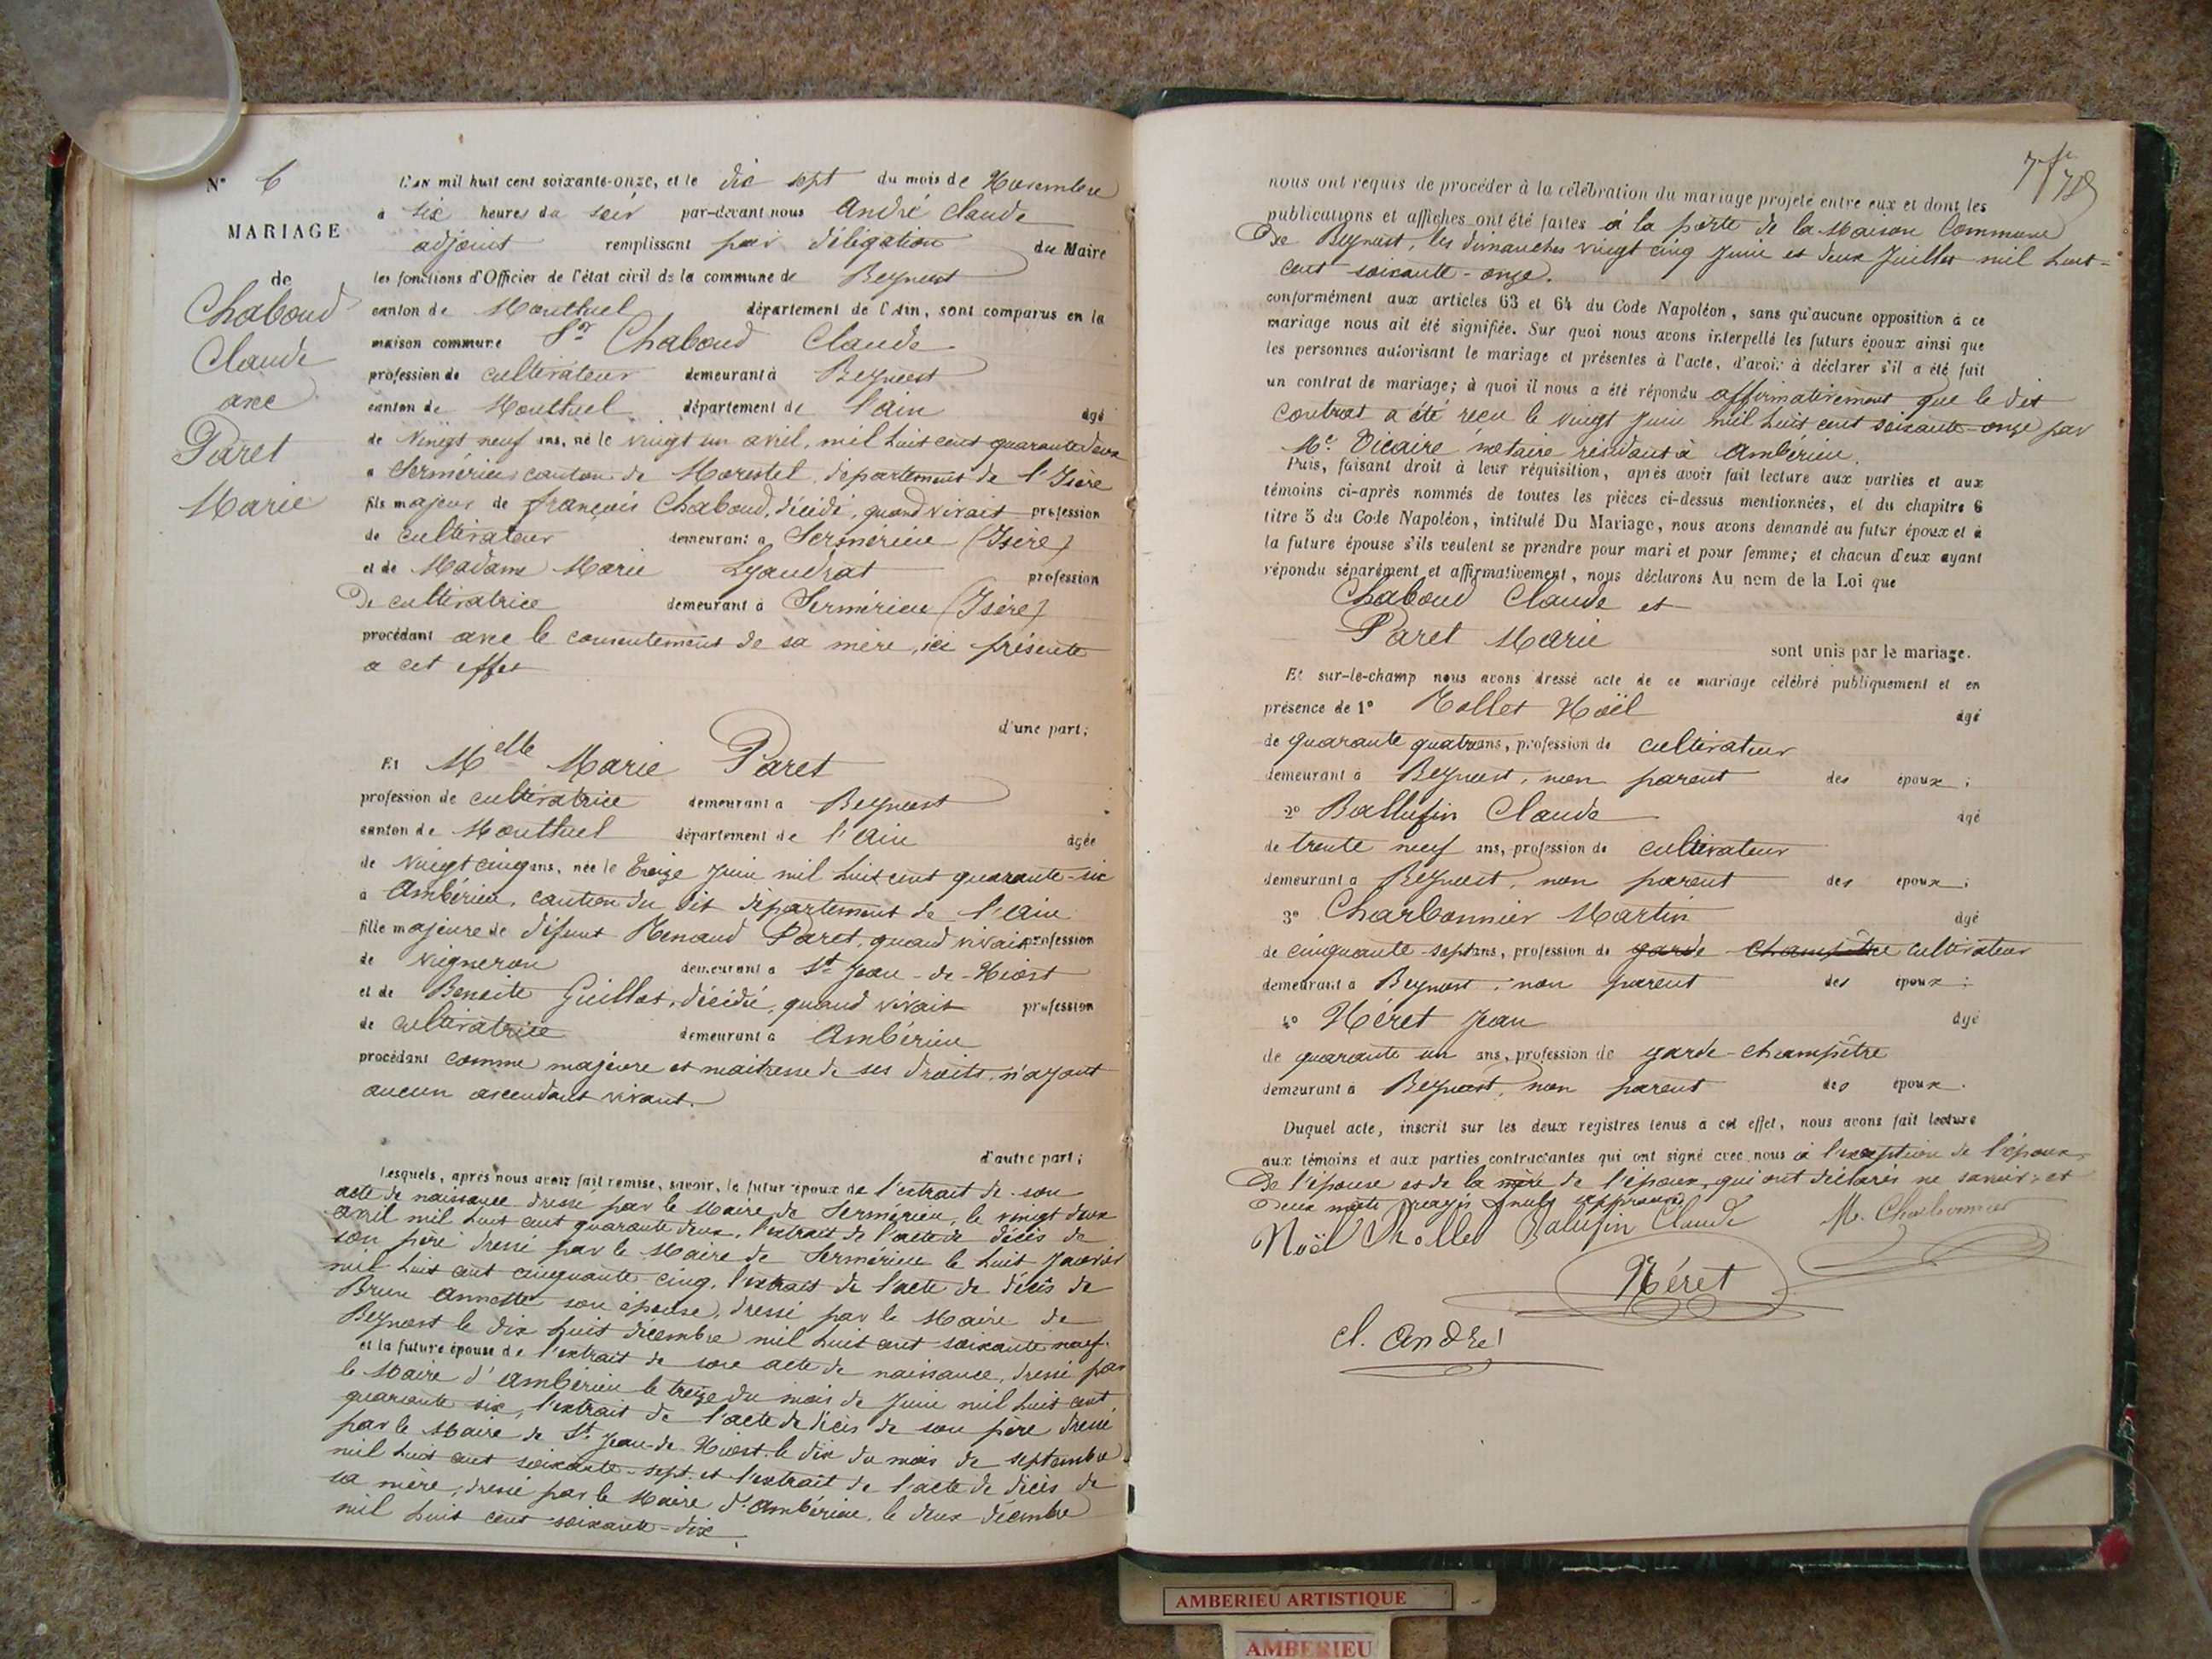 N° 6
MARIAGE
de
Chaboud
Claude
avec
Paret
Marie
L'an mil huit cent soixante-onze, et le dix sept du mois de Novembre
à six heures du soir par-devant nous André Claude
adjoint remplissant par délégation du Maire
les fonctions d'Officier de l'état civil de la commune de Beynost
canton de Montluel département de l'Ain, sont comparus en la
maison commune Sr Chaboud Claude
profession de cultivateur demeurant à Beynost
canton de Montluel département de l'ain âgé
de vingt neuf ans, né le vingt un avril, mil huit cent quarante deux
à Sermérieu canton de Morestel, département de l'Isère
fils majeur de françois Chaboud, décédé, quand vivait profession
de cultivateur demeurant à Sermérieu (Isère)
et de Madame Marie Lyaudrat profession
De cultivatrice demeurant à Sermérieu (Isère)
procédant avec le consentement de sa mère, ici présente
a cet effet
d'une part;
Et Melle Marie Paret
profession de cultivatrice demeurant à Beynost
canton de Montluel département de l'ain âgée
de vingt cinq ans, née le treize juin mil huit cent quarante-six
à Ambérieu, canton du dit département de l'ain
fille majeure de défunt Renaud Paret, quand vivait profession
de vigneron demeurant à St Jean-de-Niost
et de Benoite Guillot, décédée, quand vivait profession
de cultivatrice demeurant à Ambérieu
procédant comme majeure et maitresse de ses droits, n'ayant
aucun ascendant vivant.
d'autre part;
Lesquels, après nous avoir fait remise, savoir, le futur époux de l'extrait de son
acte de naissance dressé par le Maire de Sermérieu, le vingt deux
avril mil huit cent quarante deux, l'extrait de l'acte de décès de
son père dressé par le Maire de Sermérieu le huit janvier
mil huit cent cinquante cinq, l'extrait de l'acte de décès de
Brun Annette son épouse, dressé par le Maire de
Beynost le dix huit décembre mil huit cent soixante neuf.
et la future épouse de l'extrait de son acte de naissance, dressé par
le Maire d'Ambérieu le treize du mois de Juin mil huit cent
quarante six, l'extrait de l'acte de décès de son père dressé
par le Maire de St Jean-de-Niost, le dix du mois de septembre
mil huit cent soixante-sept et l'extrait de l'acte de décès de
sa mère, dressé par le Maire d'Ambérieu, le deux décembre
mil huit cent soixante-dix.
nous ont requis de procéder à la célébration du mariage projeté entre eux et dont les
publications et affiches ont été faites à la porte de la Maison Commune
De Beynost, les dimanches vingt cinq Juin et deux Juillet mil huit-
cent soixante-onze.
conformément aux articles 63 et 64 du Code Napoléon, sans qu'aucune opposition à ce
mariage nous ait été signifiée. Sur quoi nous avons interpellé les futurs époux ainsi que
les personnes autorisant le mariage et présentes à l'acte, d'avoir à déclarer s'il a été fait
un contrat de mariage; à quoi il nous a été répondu affirmativement que le dit
contrat a été reçu le vingt Juin mil huit cent soixante-onze par
Me Vicaire notaire résidant à Ambérieu.
Puis, faisant droit à leur réquisition, après avoir fait lecture aux parties et aux
témoins ci-après nommés de toutes les pièces ci-dessus mentionnées, et du chapitre 6
titre 5 du Code Napoléon, intitulé Du Mariage, nous avons demandé au futur époux et à
la future épouse s'ils veulent se prendre pour mari et pour femme; et chacun d'eux ayant
répondu séparément et affirmativement, nous déclarons Au nom de la Loi que
Chaboud Claude et
Paret Marie
sont unis par le mariage.
Et sur-le-champ nous avons dressé acte de ce mariage célébré publiquement et en
présence de 1° Nollet Noël âgé
de quarante quatre ans, profession de cultivateur
demeurant à Beynost, non parent des époux;
2° Ballufin Claude âgé
de trente neuf ans, profession de cultivateur
demeurant à Beynost, non parent des époux;
3° Charbonnier Martin âgé
de cinquante-sept ans, profession de garde champêtre cultivateur
demeurant à Beynost, non parent des époux;
4° Néret Jean âgé
de quarante un ans, profession de garde-champêtre
demeurant à Beynost, non parent des époux.
Duquel acte, inscrit sur les deux registres tenus à cet effet, nous avons fait lecture
aux témoins et aux parties contractantes qui ont signé avec nous à l'exception de l'époux,
De l'épouse et de la mère de l'époux, qui ont déclarés ne savoir, et
Deux mots rayés nuls approuvés
Balufin Claude M. Charbonnier
Néret
cl. André
AMBERIEU ARTISTIQUE
AMBERIEU